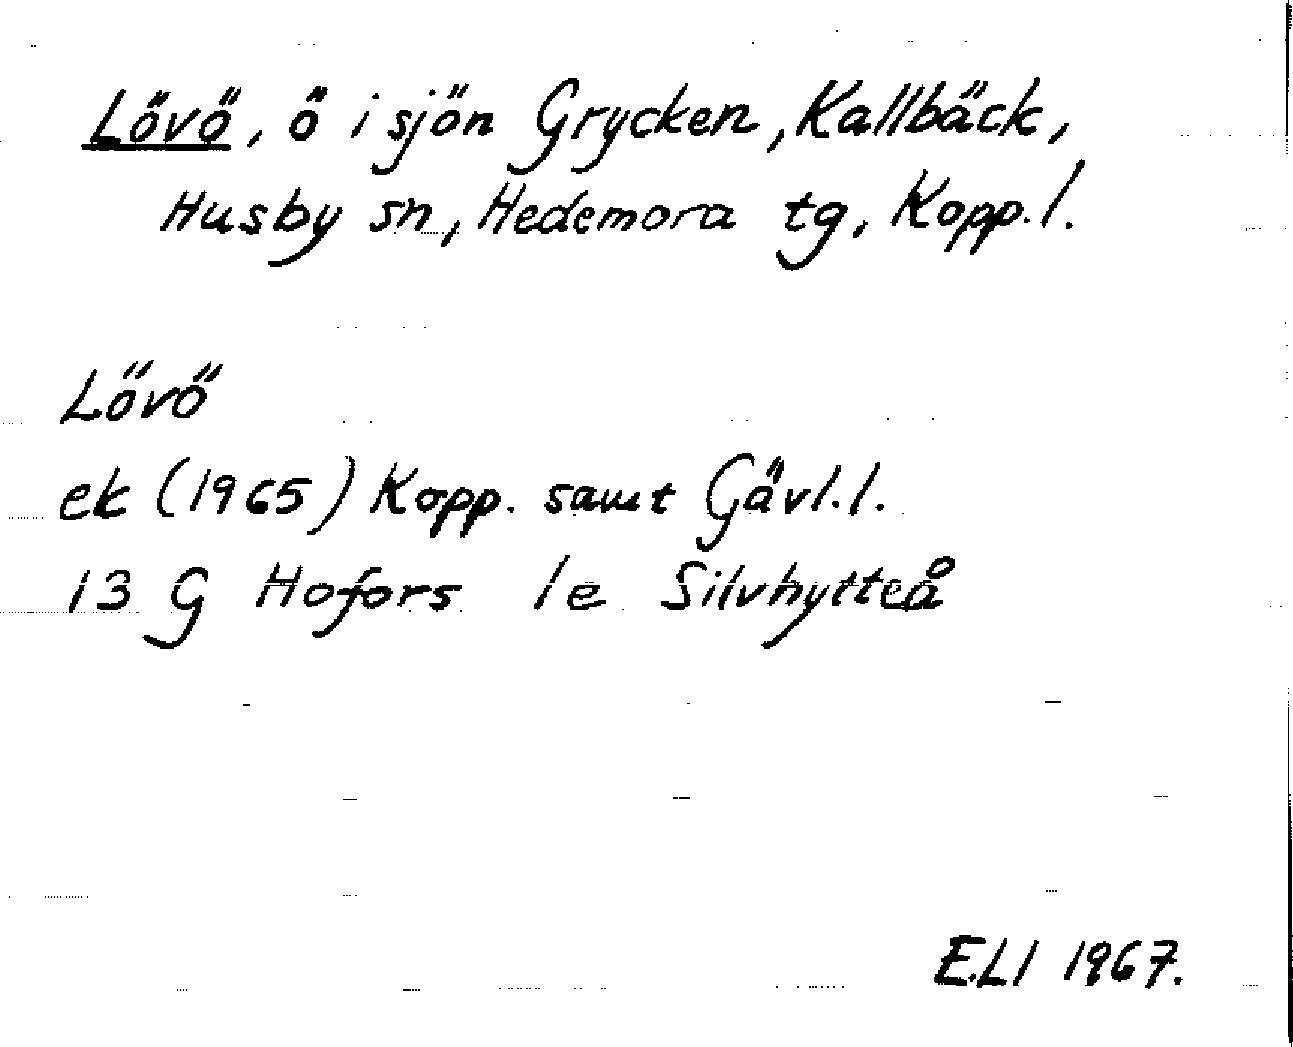 Lövö, ö i sjön Grycken, Kallbäck,
Husby sn, Hedemora tg, Kopp. l.
Lövö
ek (1965) Kopp. samt Gävl. l.
13 G Hofors 1e Silvhytteå
ELI 1967.